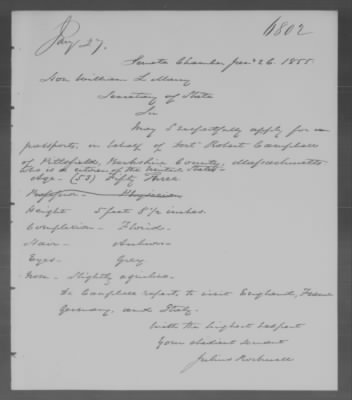 Jany 27.
6802
Senate Chamber Jan'y 26. 1855.
Hon William L Marcy
Secretary of State
Sir
May I respectfully apply for a
passport, on behalf of Robert Campbell
of Pittsfield, Berkshire County, Massachusetts
who is a citizen of the United States
Age - (53) Fifty Three
Profession - Physician
Height 5 feet 8 1/2 inches.
Complexion - Florid -
Hair - Auburn -
Eyes - Grey
Nose - Slightly aquiline -
Campbell expects to visit England, France
Germany, and Italy.
With the highest respect
Your obedient servant
Julius Rockwell